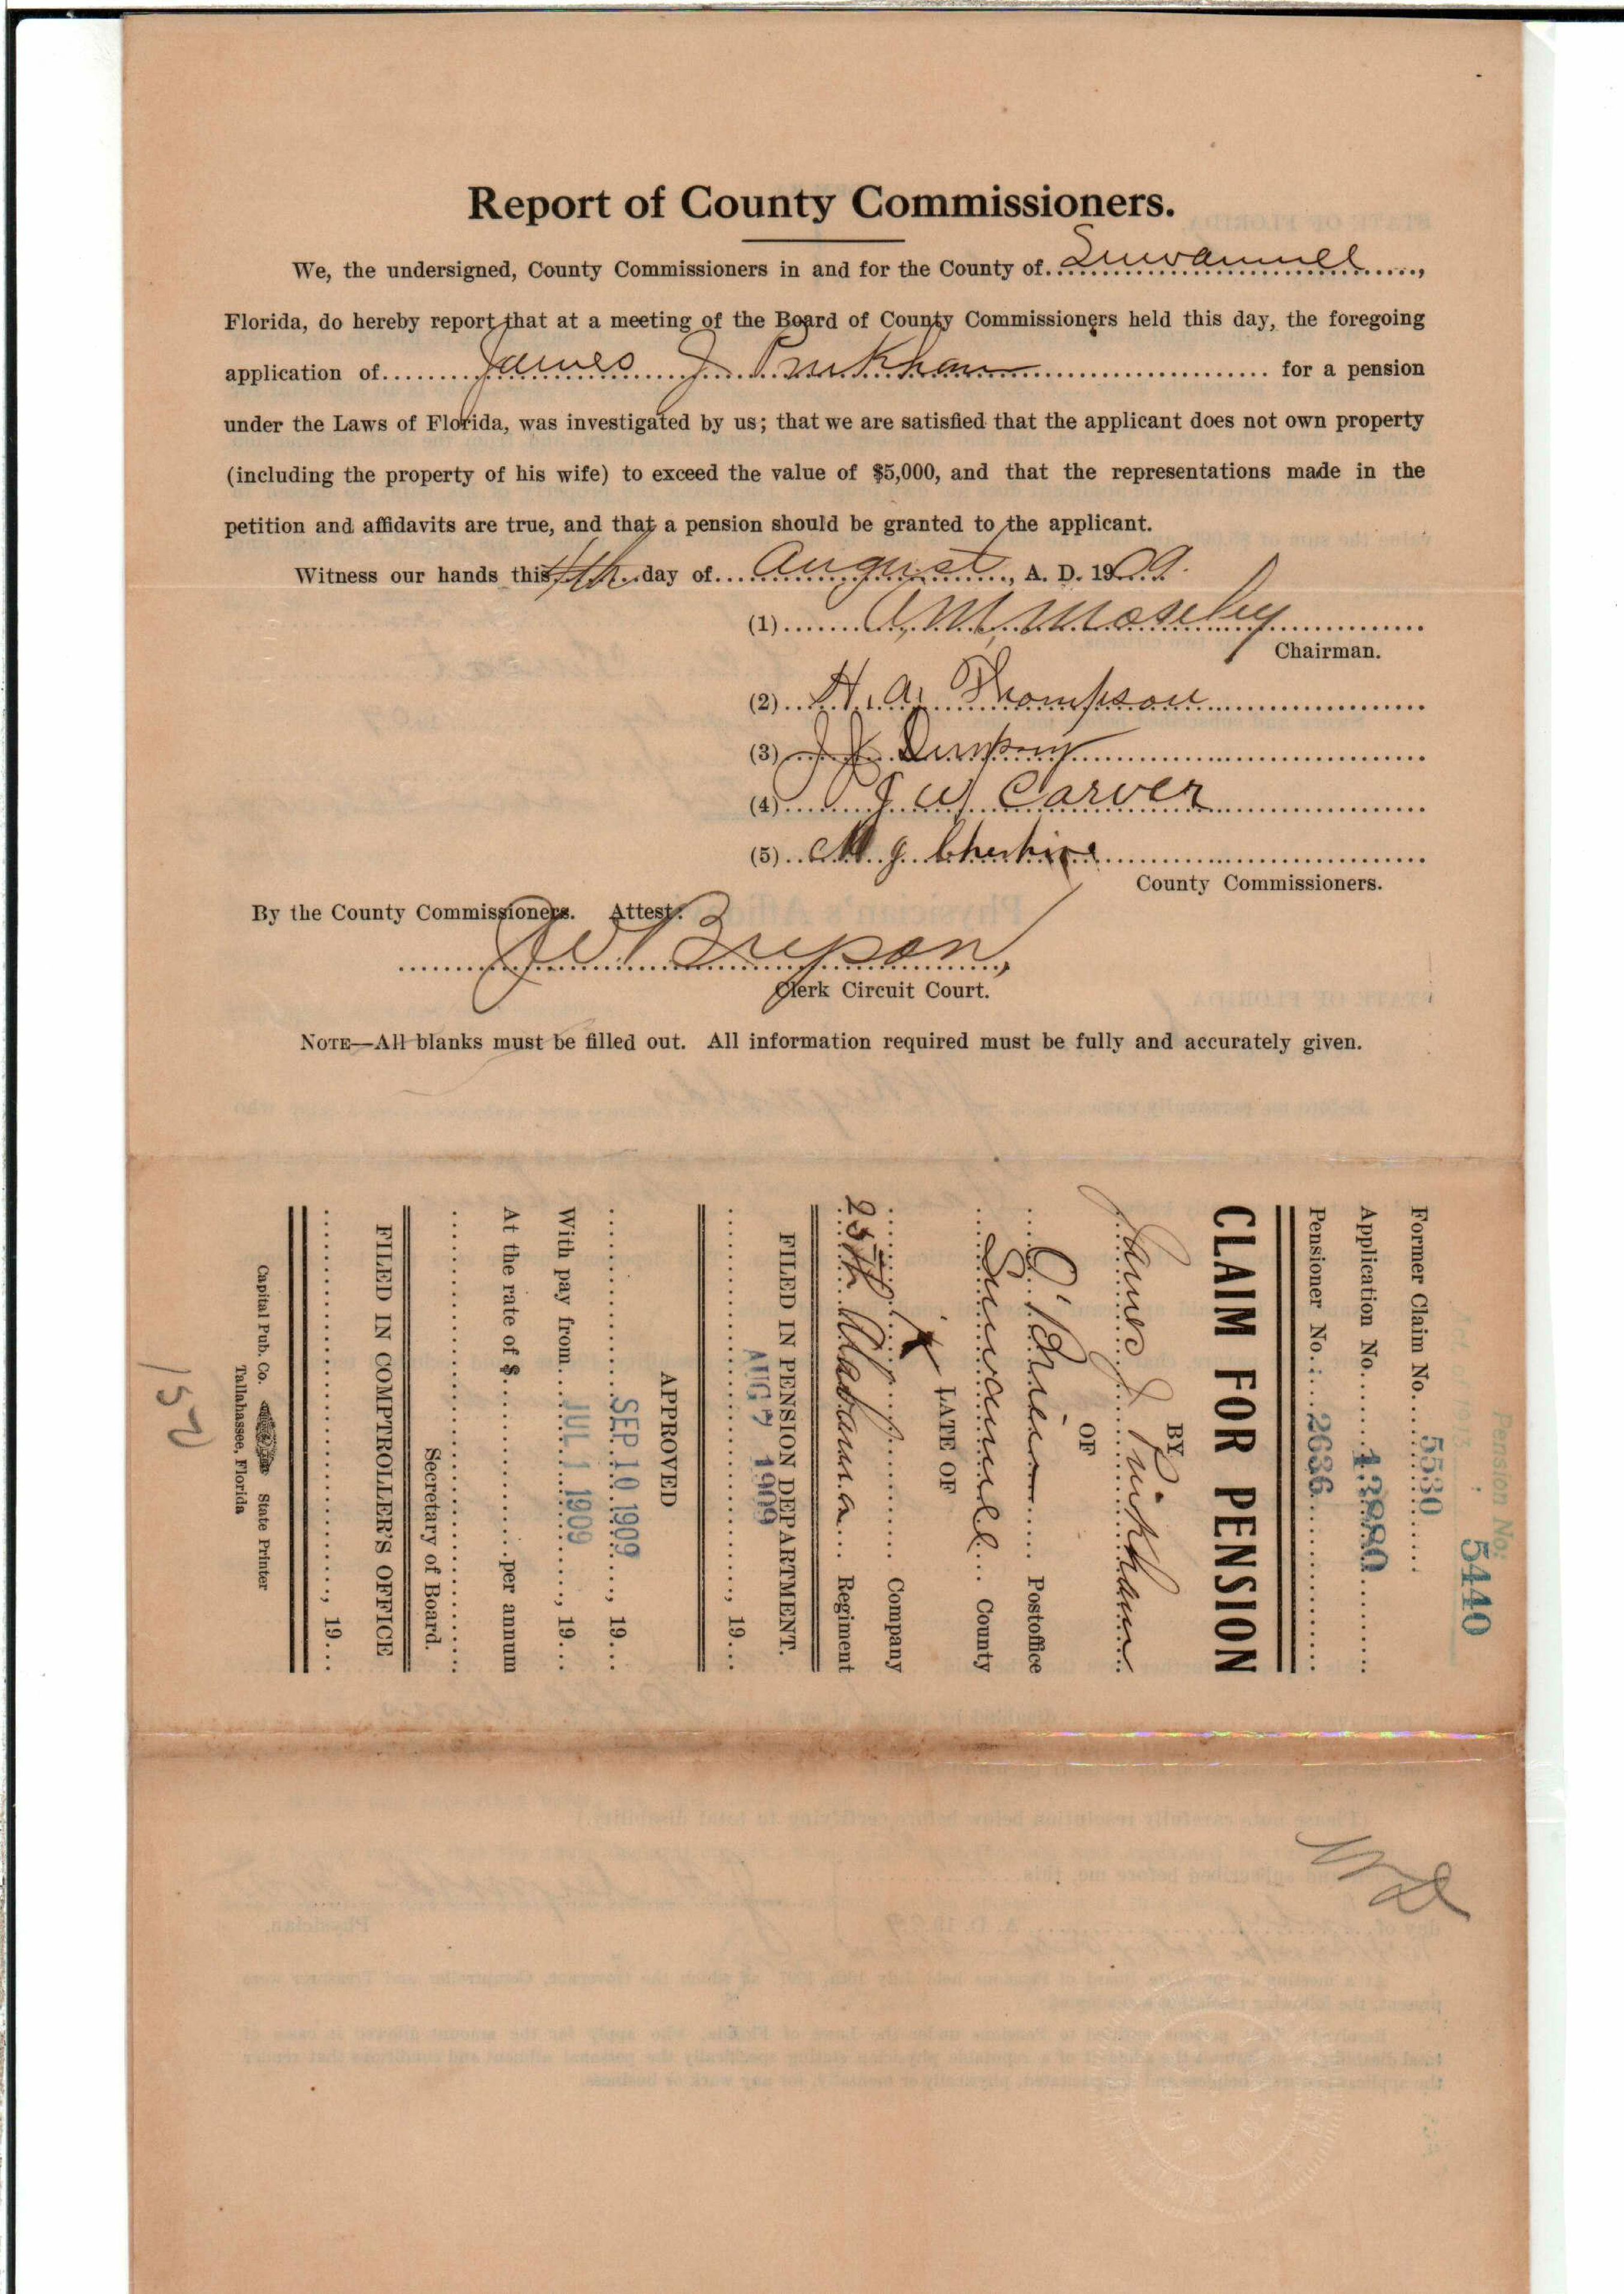 Report of County Commissioners.
We, the undersigned, County Commissioners in and for the County of Suwannee,
Florida, do hereby report that at a meeting of the Board of County Commissioners held this day, the foregoing
application of James J for a pension
under the Laws of Florida, was investigated by us; that we are satisfied that the applicant does not own property
(including the property of his wife) to exceed the value of $5,000, and that the representations made in the
petition and affidavits are true, and that a pension should be granted to the applicant.
Witness our hands this 4th day of August, A. D. 1909.
(1) A. M. Moseley
Chairman.
(2) H. A. Thompson
(3) J J
(4) J W Carver
(5) M J Cheshire
County Commissioners.
By the County Commissioners. Attest:
J W Bryson,
Clerk Circuit Court.
NOTE—All blanks must be filled out. All information required must be fully and accurately given.
Pension No: 5440
Act of 1913
Former Claim No. 5530
Application No. 13880
Pensioner No. 2636
CLAIM FOR PENSION
BY
James J
OF
O'Brien Postoffice
Suwannee County
LATE OF
K Company
25th Alabama Regiment
FILED IN PENSION DEPARTMENT.
AUG 7 1909, 19
APPROVED
SEP 10 1909, 19
With pay from JUL 1 1909, 19
At the rate of $ per annum
Secretary of Board.
FILED IN COMPTROLLER'S OFFICE
, 19
Capital Pub. Co. State Printer
Tallahassee, Florida